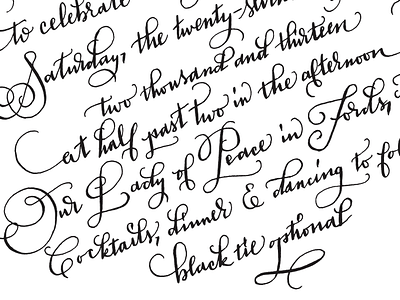 to celebrate
Saturday, the twenty-seventh
two thousand and thirteen
at half past two in the afternoon
Our Lady of Peace in Fords,
Cocktails, dinner & dancing to fol
black tie optional